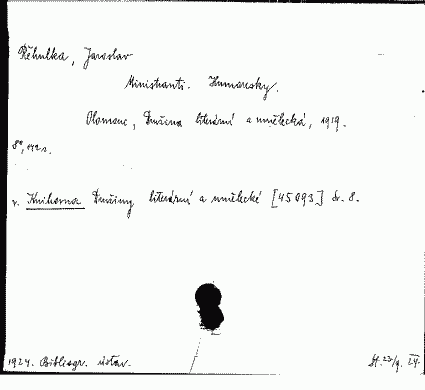 Řehulka, Jaroslav
Ministranti. Humoresky.
Olomouc, Družina literární a umělecká, 1919.
8°, 142 s.
v. Knihovna Družiny literární a umělecké [45093] sv. 8.
1924. Bibliogr. ústav.
24.